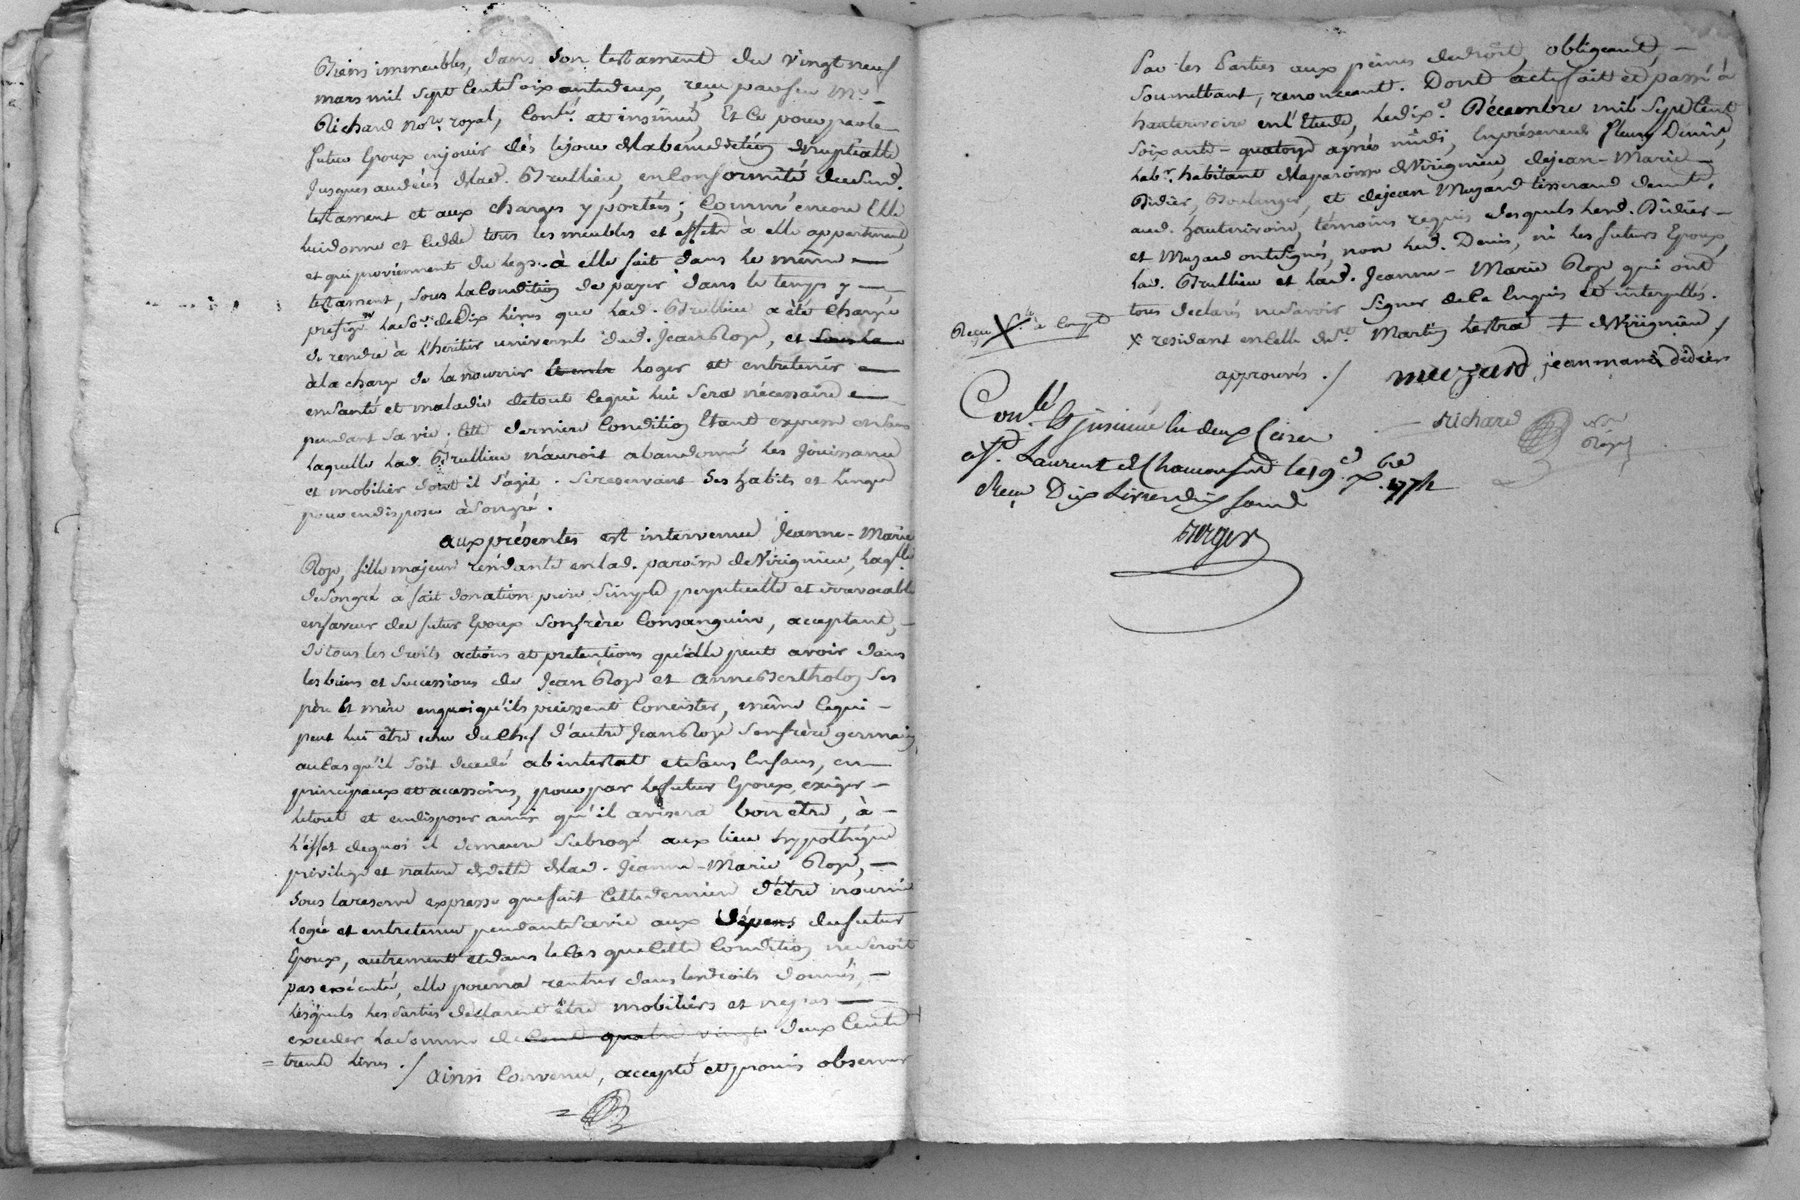 Biens immeubles, dans son testament du vingt neuf
mars mil sept Cent soixante deux, reçu par feu Me. –
Richard nore. royal, Conlé. et insinué, Et Ce pour par le –
futur Epoux en jouir dès le jour de la bénédiction Nuptialle
jusques au décès de lad. Brullieu, en Conformité du susd.
testament et aux charges y portées; Comm' encore Elle
lui donne et Cedde tous les meubles et effets à elle appartenant,
et qui proviennent du legs à elle fait dans le même –
testament, sous la Condition de payer dans le temps y –
préfigé la so. de Dix livres que lad. Brullieu a été Chargée
de rendre à l'héritier universel dud. Jean Roze, et sous la
à la charge de la nourrir loger et entretenir –
en santé et maladie de tout Ce qui lui sera nécessaire –
pendant sa vie; Cette dernière Condition Etant expresse en sans
laquelle lad. Brullieu n'auroit abandonné les Jouissance
et mobilier dont il s'agit. Se reservant ses habits et linges
pour en disposer à son gré.
aux présentes est intervenue Jeanne-Marie
Roze, fille majeure résidante en lad. paroisse de Virignieu, laqlle
de son gré a fait donation pure simple perpetuelle et irrevocable
en faveur du futur Epoux son frère Consanguin, acceptant, –
de tous les droits actions et pretentions qu'elle peut avoir dans
les biens et successions de Jean Roze et anne Bertholon ses
père Et mère en quoi qu'ils puissent Concister, même Ce qui –
peut lui être échu du Chef d'autre Jean Roze son frère germain,
au Cas qu'il soit decedé abintestat et sans Enfans, en –
principaux et accessoires, pour par le futur Epoux, exiger –
le tout et en disposer ainsi qu'il avisera bon être, à –
l'effet de quoi il demeure subrogé aux lieu hypothéque
privilège et nature de dette de lad. Jeanne-Marie Roze, –
sous la reserve expresse que fait Cette dernière d'être nourrie
logée et entretenue pendant sa vie aux dépens du futur
Epoux, autrement et dans le Cas que Cette Condition ne seroit
pas exécutée, elle pourra rentrer dans les droits donnés, –
lesquels les Parties déclarent être mobiliers et ne pas –
exceder la somme de Cent quatre vingt deux Cents
= trente livres ./ Ainsi Convenu, accepté et promis observer
Par les Parties aux peines de droit, obligeant, –
soumettant, renonçant. Dont acte fait et passé à
hauterivoire en l'Etude, le dixe. Décembre mil sept Cent
soixante-quatorze après midi, En présence de fleury Denis,
habt. habitant de la paroisse de Virignieu, de jean-Marie –
Didier, Boulanger, et de jean Muzard tisserand demt.
aud. hauterivoire, témoins requis desquels lesd. Didier –
et Muzard ont signé, non led. Denis, ni les futurs Epoux,
lad. Brullieu et lad. Jeanne-Marie Roze qui ont
tous declaré ne savoir signer de Ce Enquis et interpellés.
X residant en Celle de St. Martin lestra ‡ de Virignieu /
approuvés ./
muzard jean marie didier
Richard
Conlé. Et insinué les deux Cases
à St. Laurent de Chamousset le 19e. xbre 1774
Reçu Dix livres dix sous
Berger